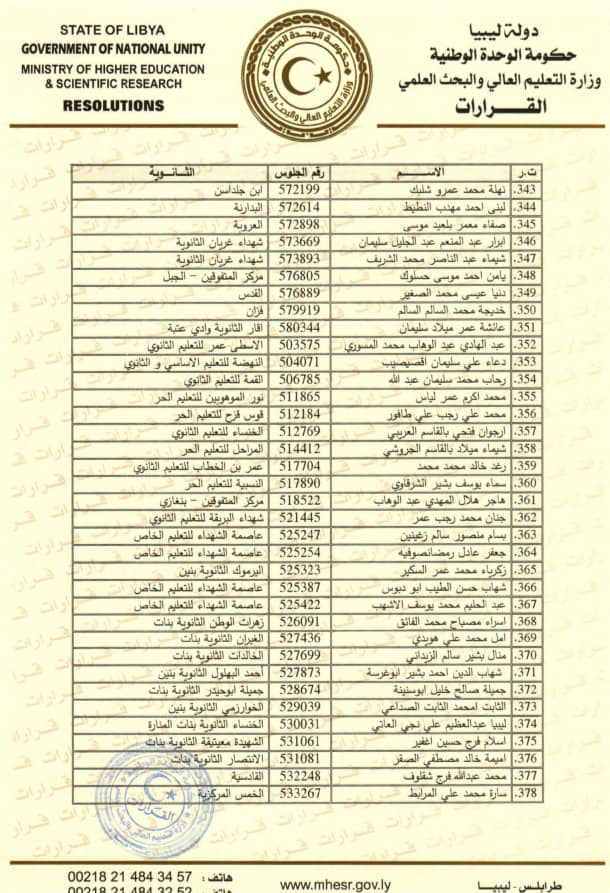 STATE OF LIBYA
GOVERNMENT OF NATIONAL UNITY
MINISTRY OF HIGHER EDUCATION
& SCIENTIFIC RESEARCH
RESOLUTIONS
دولة ليبيا
حكومة الوحدة الوطنية
وزارة التعليم العالي والبحث العلمي
القـــرارات
ت.ر الاســـم رقم الجلوس الثـانـويـة
343. نهلة محمد عمرو شلبك 572199 ابن جلداسن
344. لبنى احمد مهدب النطيط 572614 البدارنة
345. صفاء معمر بلعيد موسى 572898 العروبة
346. ابرار عبد المنعم عبد الجليل سليمان 573669 شهداء غريان الثانوية
347. شيماء عبد الناصر محمد الشريف 573893 شهداء غريان الثانوية
348. يامن احمد موسى حسلوك 576805 مركز المتفوقين – الجبل
349. دنيا عيسى محمد الصغير 576889 القدس
350. خديجة محمد السالم السالم 579919 فزان
351. عائشة عمر ميلاد سليمان 580344 اقار الثانوية وادي عتبة
352. عبد الهادي عبد الوهاب محمد المسوري 503575 الاسطى عمر للتعليم الثانوي
353. دعاء علي سليمان اقصيصيب 504071 النهضة للتعليم الاساسي و الثانوي
354. رحاب محمد سليمان عبد الله 506785 القمة للتعليم الثانوي
355. محمد اكرم عمر لياس 511865 نور الموهوبين للتعليم الحر
356. محمد علي رجب علي طافور 512184 قوس قزح للتعليم الحر
357. ارجوان فتحي بالقاسم العريبي 512769 الخنساء للتعليم الثانوي
358. شيماء ميلاد بالقاسم الجروشي 514412 المراحل للتعليم الحر
359. رغد خالد محمد محمد 517704 عمر بن الخطاب للتعليم الثانوي
360. سماء يوسف بشير الشرقاوي 517890 النسبية للتعليم الحر
361. هاجر هلال المهدي عبد الوهاب 518522 مركز المتفوقين – بنغازي
362. جنان محمد رجب عمر 521445 شهداء البريقة للتعليم الثانوي
363. بسام منصور سالم زغينين 525247 عاصمة الشهداء للتعليم الخاص
364. جعفر عادل رمضانصوفيه 525254 عاصمة الشهداء للتعليم الخاص
365. زكرياء محمد عمر السكير 525323 اليرموك الثانوية بنين
366. شهاب حسن الطيب ابو دبوس 525387 عاصمة الشهداء للتعليم الخاص
367. عبد الحليم محمد يوسف الاشهب 525422 عاصمة الشهداء للتعليم الخاص
368. اسراء مصباح محمد الفائق 526091 زهرات الوطن الثانوية بنات
369. امل محمد علي هويدي 527436 الغيران الثانوية بنات
370. منال بشير سالم الزيداني 527699 الخالدات الثانوية بنات
371. شهاب الدين احمد بشير ابوغرسة 527873 أحمد البهلول الثانوية بنين
372. جميلة صالح خليل ابوسنينة 528674 جميلة ابوحيدر الثانوية بنات
373. الثابت امحمد الثابت الصداعي 529039 الخوارزمي الثانوية بنين
374. ليبيا عبدالعظيم علي نجي العاتي 530031 الخنساء الثانوية بنات المنارة
375. اسلام فرج حسين اغفير 531061 الشهيدة معيتيقة الثانوية بنات
376. اميمة خالد مصطفي الصقر 531081 الانتصار الثانوية بنات
377. محمد عبدالله فرج شقلوف 532248 القادسية
378. سارة محمد علي المرابط 533267 الخمس المركزية
طرابلس - ليبيـــا
www.mhesr.gov.ly
هاتف : 00218 21 484 34 57
هاتف : 00218 21 484 32 52